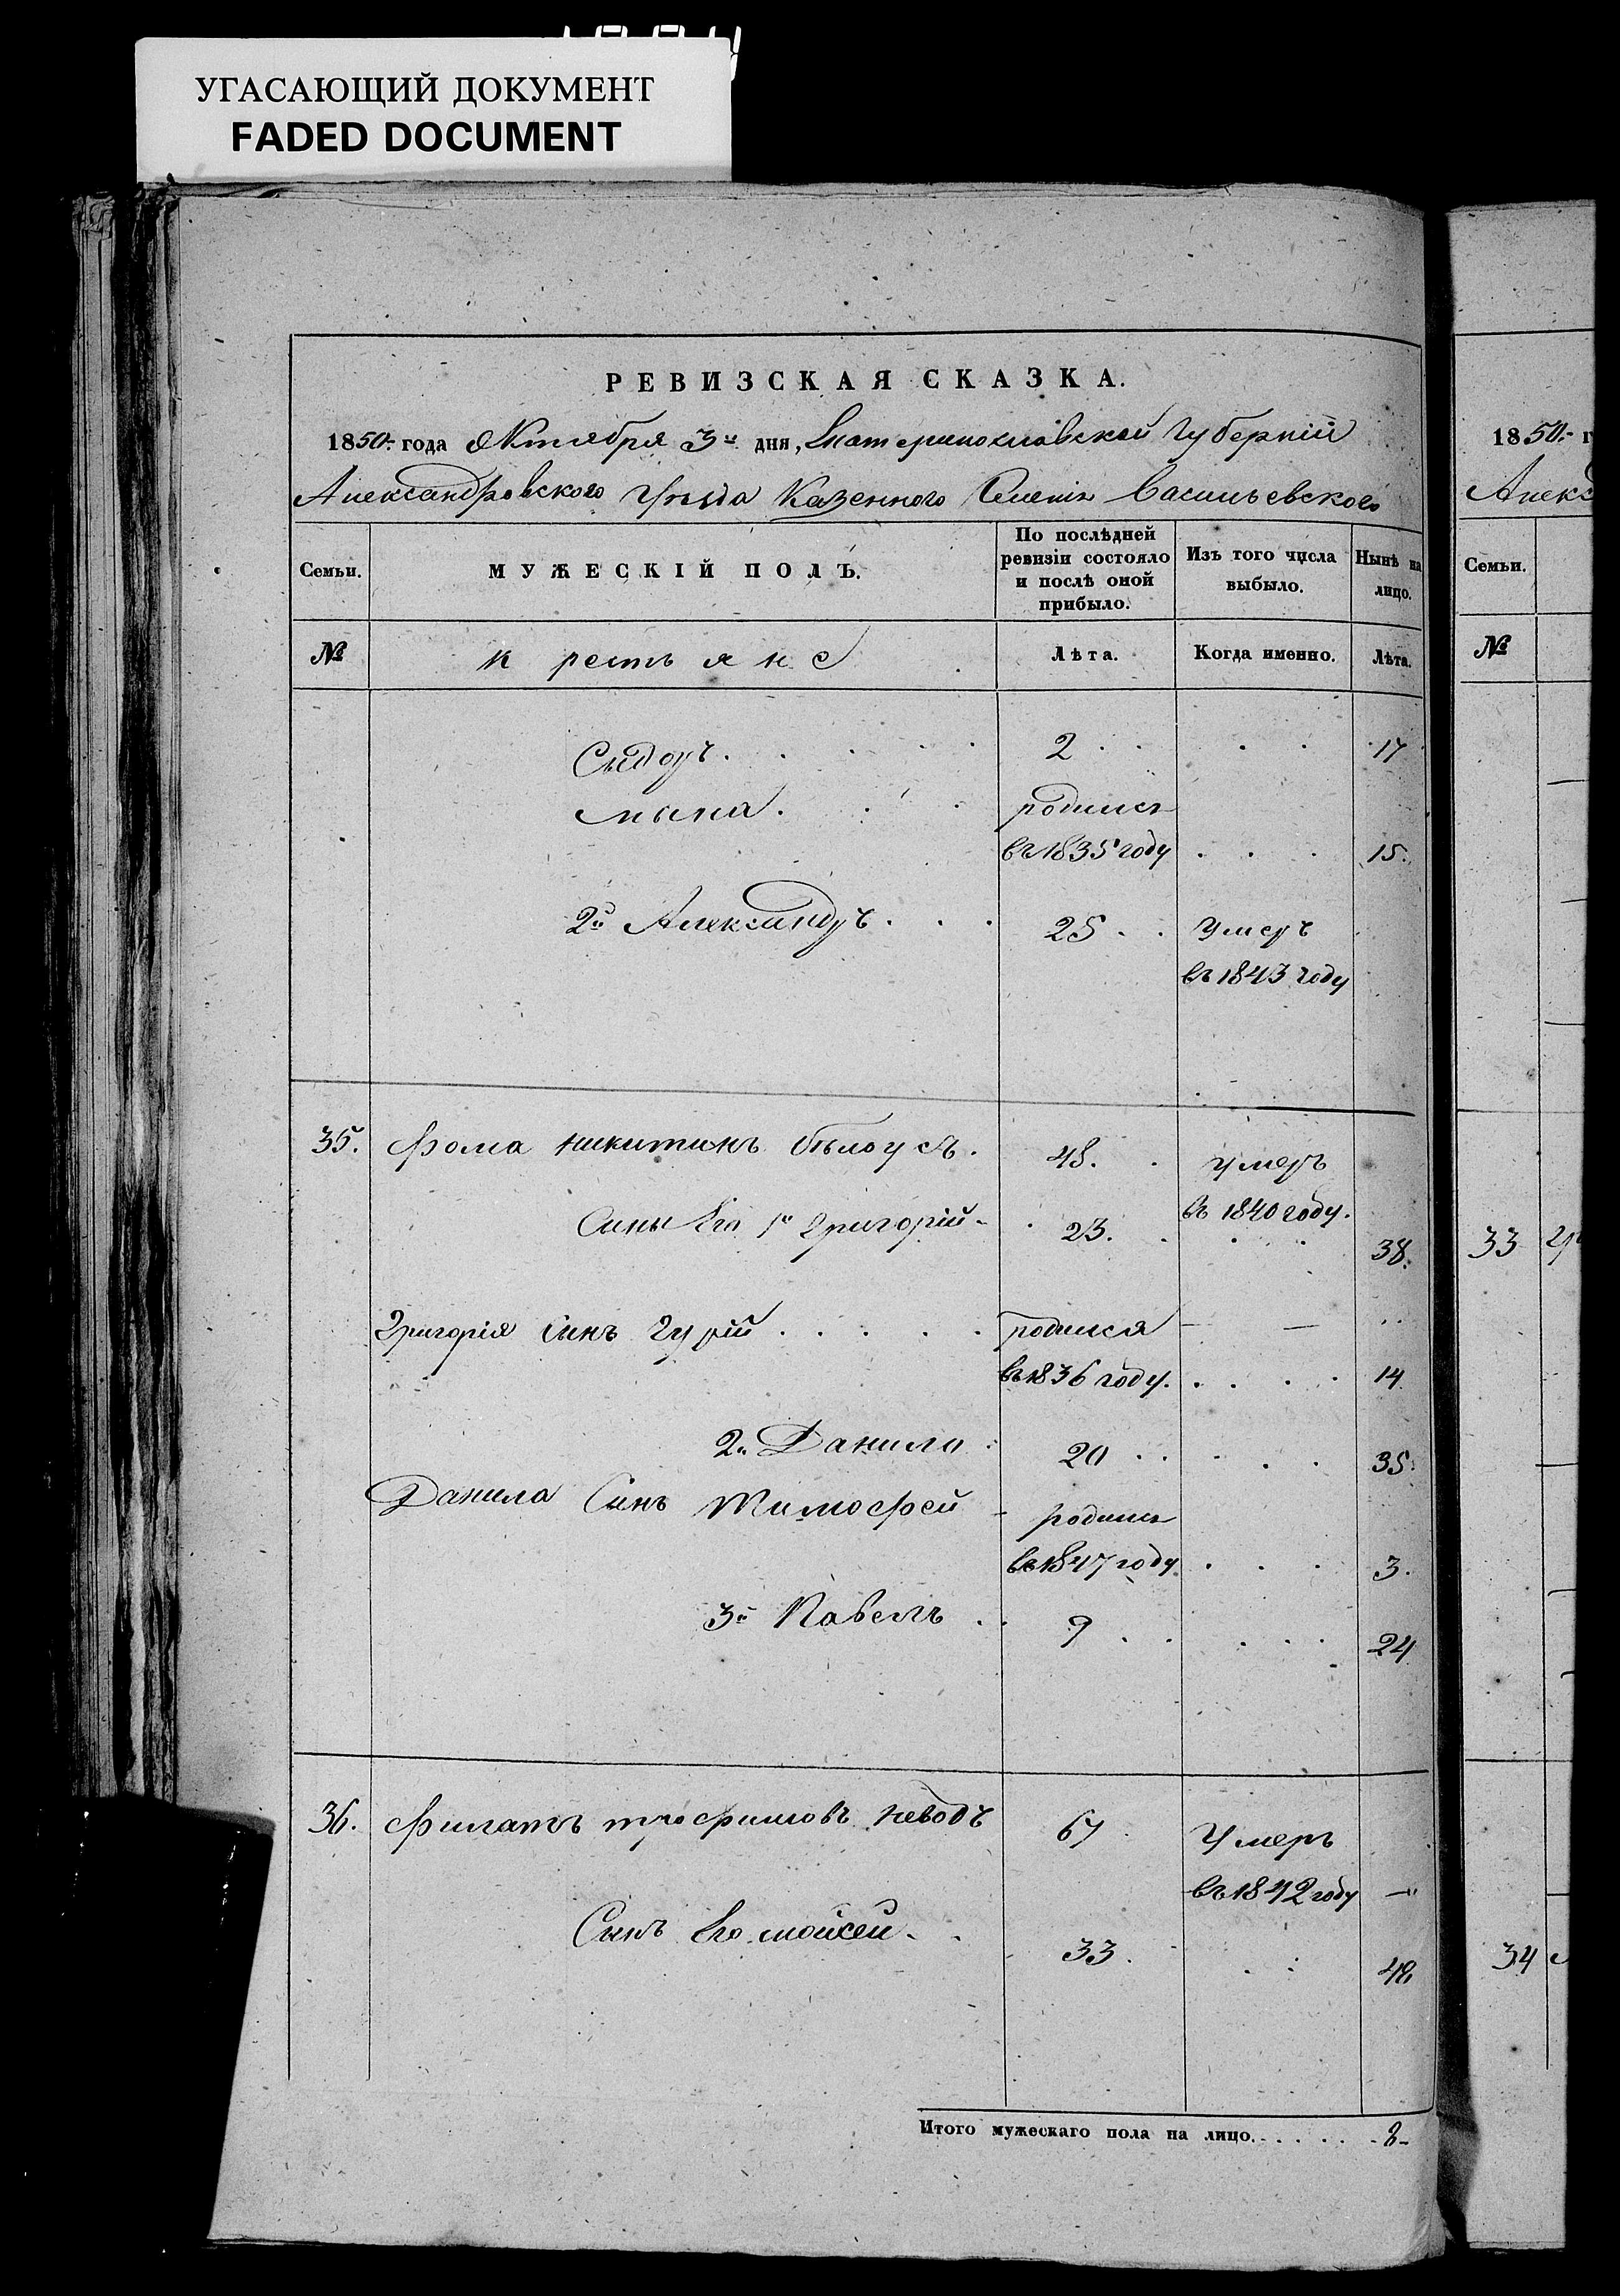 УГАСАЮЩИЙ ДОКУМЕНТ
FADED DOCUMENT
РЕВИЗСКАЯ СКАЗКА.
1850.- года Октября 3го дня, Екатеринославской Губернiи
Александровского Уѣзда Казенного Селенiя Васильевского
Семьи. МУЖЕСКІЙ ПОЛЪ. По послѣдней ревизіи состояло и послѣ оной прибыло. Изъ того числа выбыло. Нынѣ на лицо.
№ крестьяне Лѣта. Когда именно. Лѣта.
Сыдоръ . . . . . 2 . . . . 17
родился
въ 1835 году . . . 15.
2й Александръ . . . 25 . . Умеръ
въ 1843 году
35. Фома никитинъ бѣлоусъ. 48. . умеръ
въ 1840 году.
Сыны Его 1й Григорій - . 23. . . . 38.
Григорія Сынъ Гурій . . . . . родился — —
въ 1836 году. . . . . 14.
2й Данило . 20 . . . . . 35.
Данила Сынъ Тимофей - родился
въ 1847 году . . . 3.
3й Павелъ . . 9 . . . . . 24
36. Филатъ трофимовъ неводъ 67 Умеръ
въ 1842 году —"
Сынъ Его мойсей . . 33. . . 48
Итого мужескаго пола на лицо. . . . . . - 8 -
1850.- г
Алекс
Семьи.
№
33
34